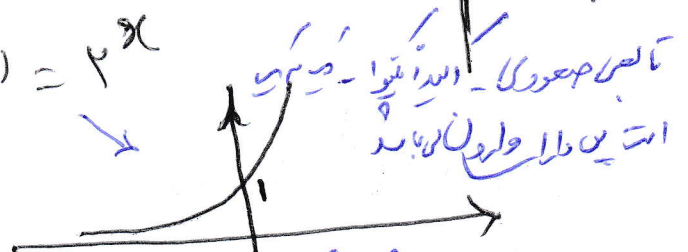 ) = ۲^x
تابعی صعودی - اکیداً یکنوا -
است پس دارای وارون می‌باشد
۱